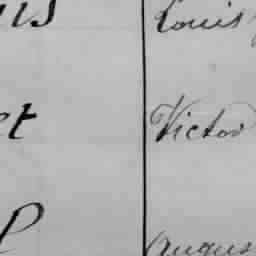 Louis
et Victor
Augus